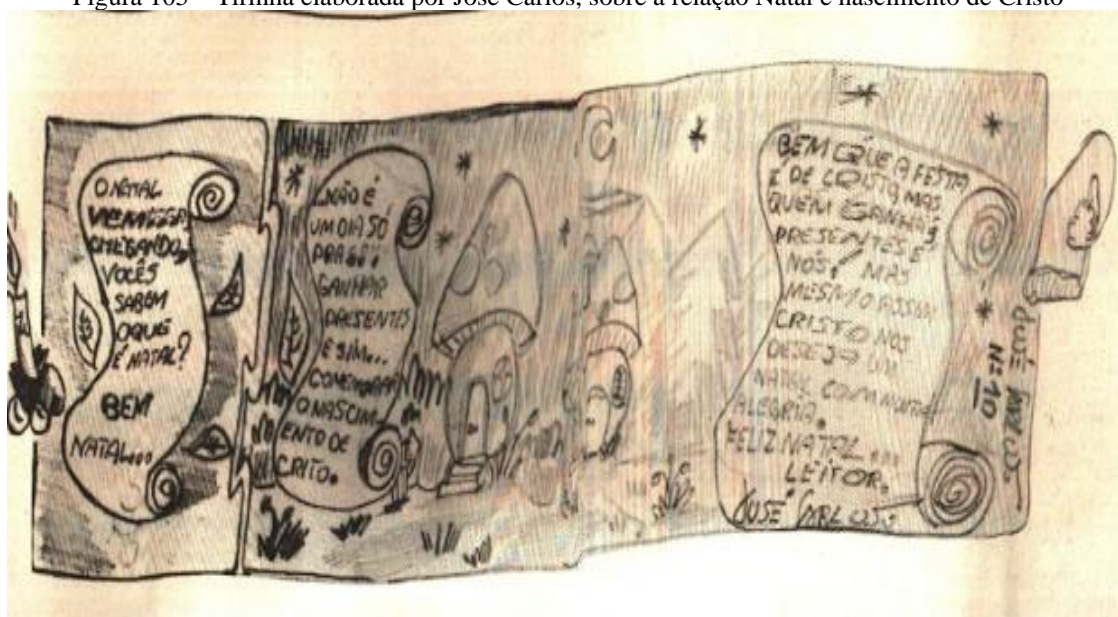 Figura 103 – Tirinha elaborada por José Carlos, sobre a relação Natal e nascimento de Cristo
O NATAL
VEM
CHEGANDO,
VOCÊS
SABEM
OQUE
É NATAL?
BEM
NATAL...
...NÃO É
UM DIA SÓ
PRA
GANHAR
PRESENTES
E SIM...
COMEMORAR
O NASCIM-
ENTO DE
CRITO.
BEM QUE A FESTA
É DE CRISTO, MAS
QUEM GANHA
PRESENTES É
NÓS! MAS
MESMO ASSIM
CRISTO NOS
DESEJA UM
NATAL COM MUITA
ALEGRIA.
FELIZ NATAL...
LEITOR.
JOSÉ CARLOS
JOSÉ CARLOS
Nº 10